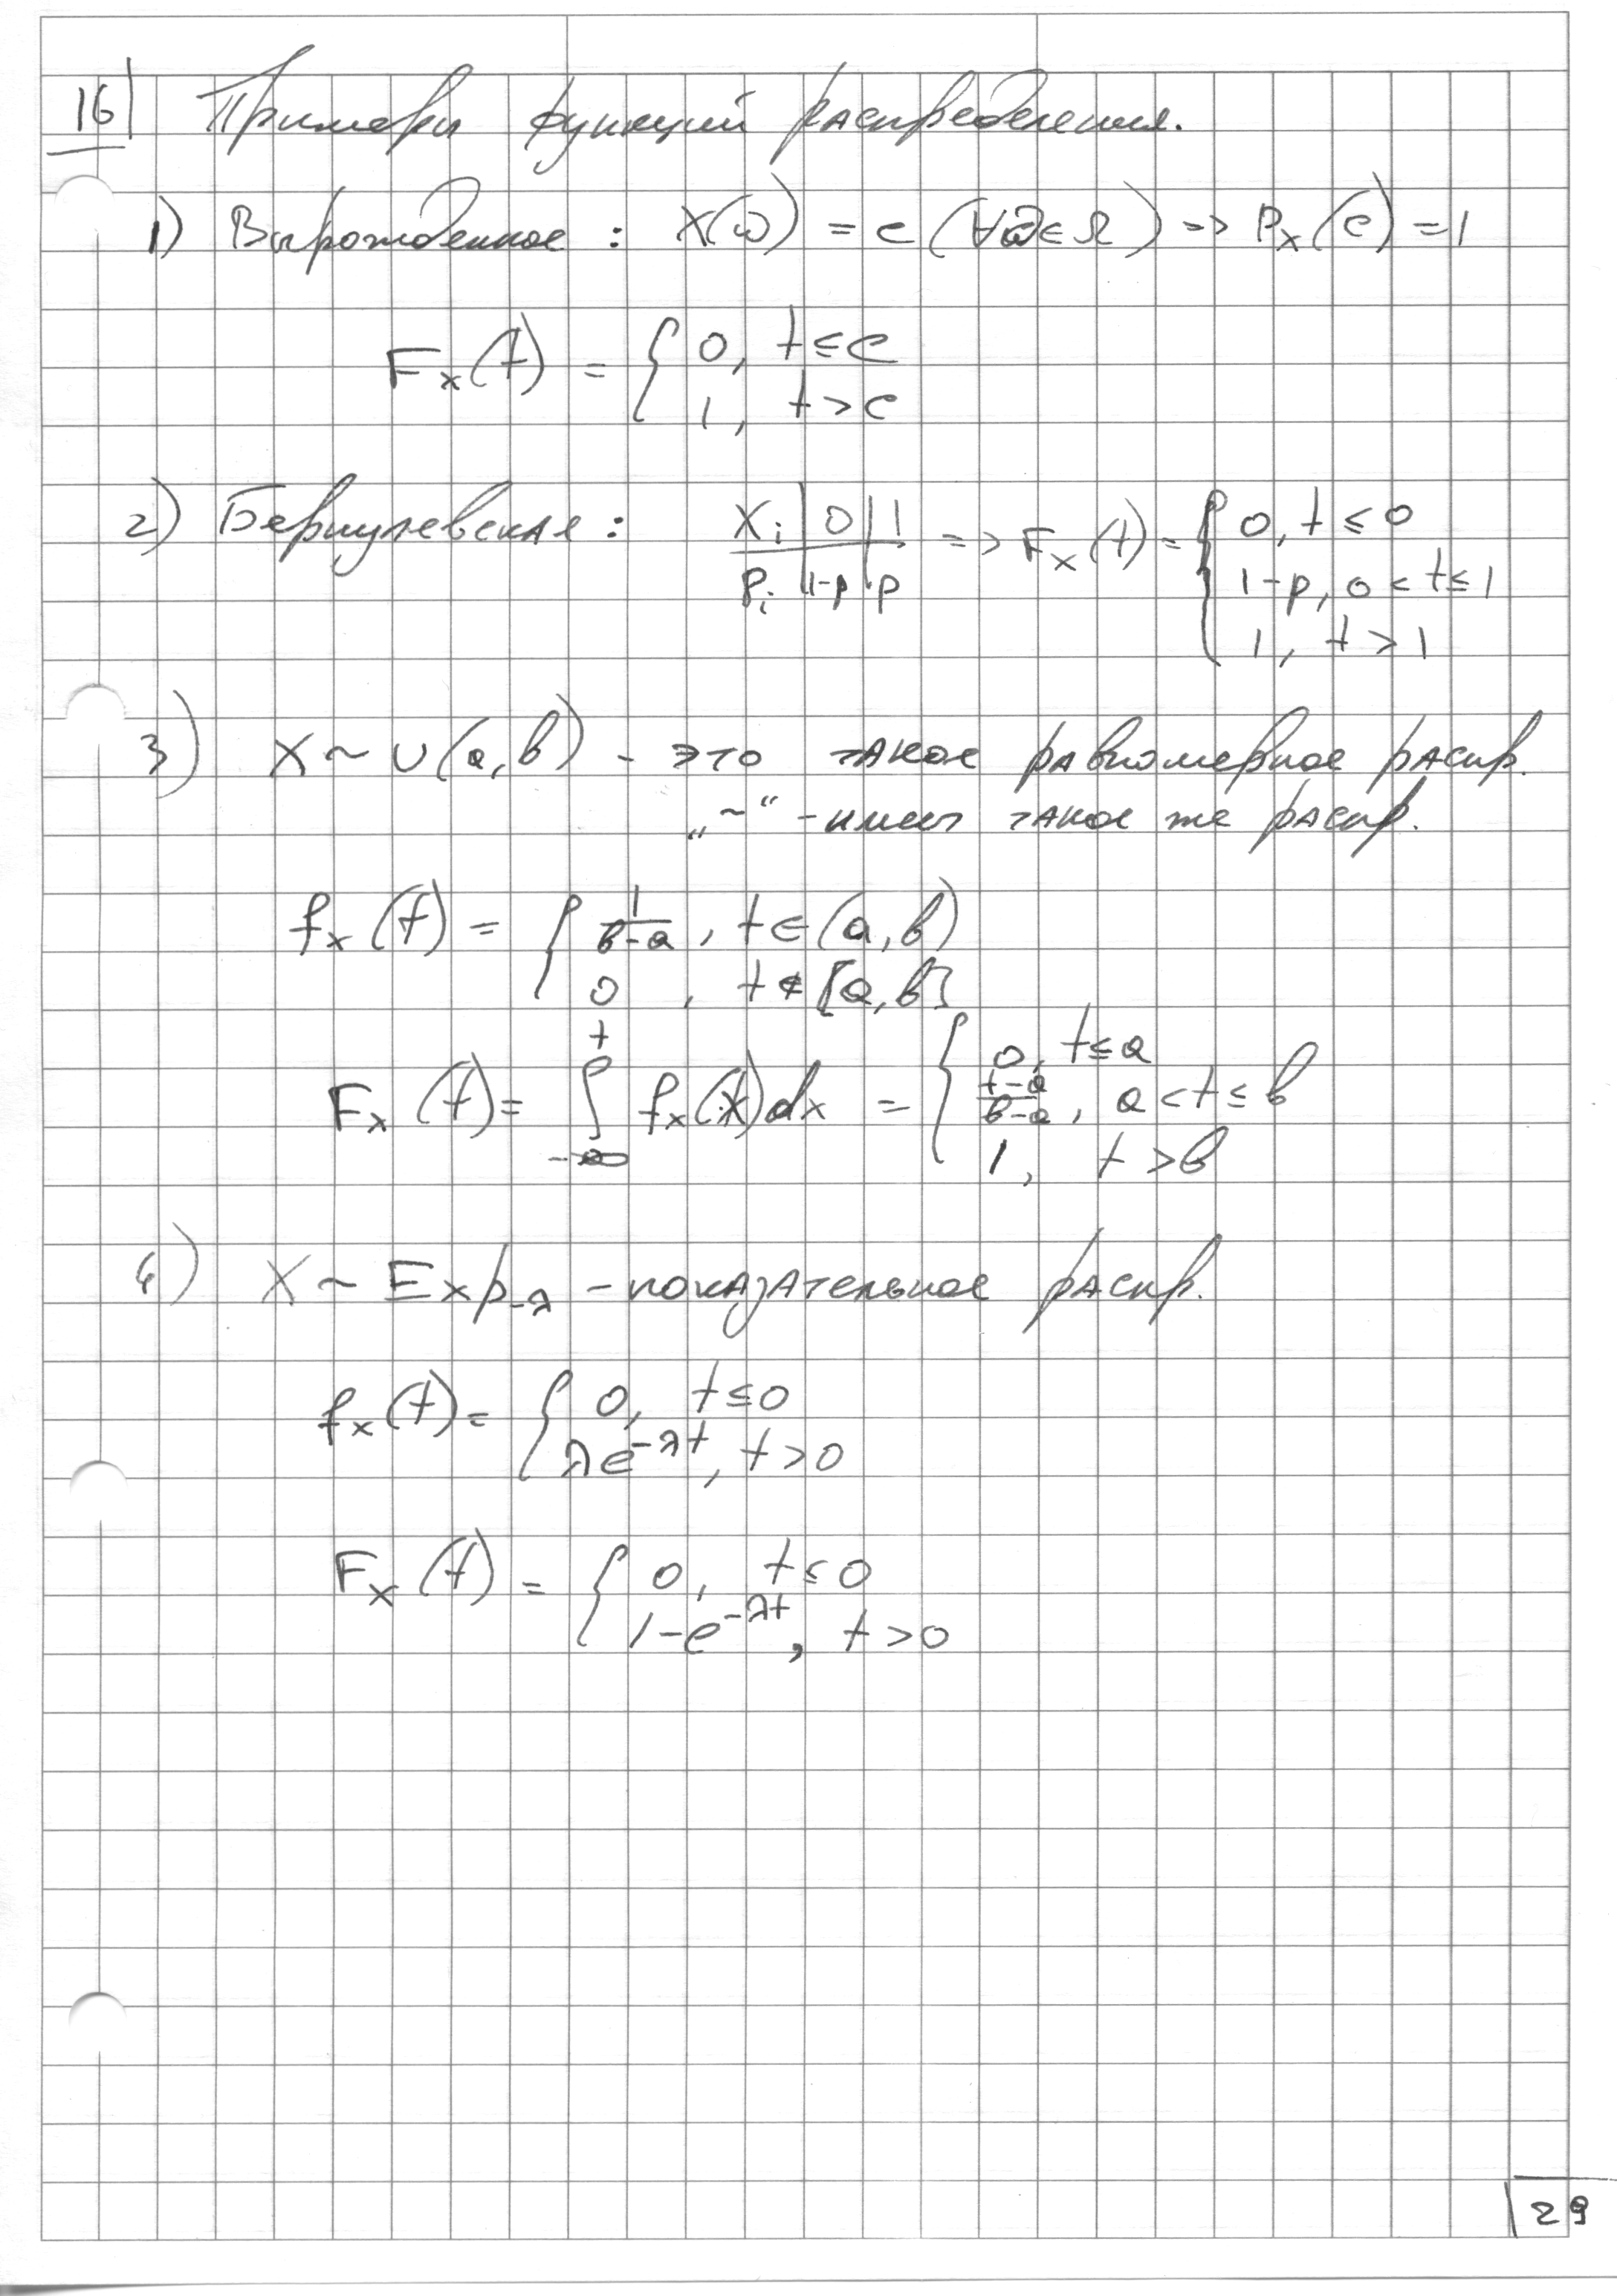 16 Примеры функций распределения.
1) Вырожденное : X(ω) = c (∀ω∈Ω) => Pₓ(c) = 1
Fₓ(t) = { 0, t ≤ c
1, t > c
2) Бернулевская : Xᵢ | 0 | 1 => Fₓ(t) = { 0, t ≤ 0
Pᵢ | 1-p | p 1-p, 0 < t ≤ 1
1, t > 1
3) X ~ U(a,b) - это такое равномерное распр.
„~“ - имеет такое же распр.
fₓ(t) = { 1/(b-a), t ∈ (a,b)
0, t ∉ [a,b]
Fₓ(t) = ∫_{-∞}^{t} fₓ(x)dx = { 0, t ≤ a
(t-a)/(b-a), a < t ≤ b
1, t > b
4) X ~ Exp_{-λ} - показательное распр.
fₓ(t) = { 0, t ≤ 0
λe^{-λt}, t > 0
Fₓ(t) = { 0, t ≤ 0
1-e^{-λt}, t > 0
29